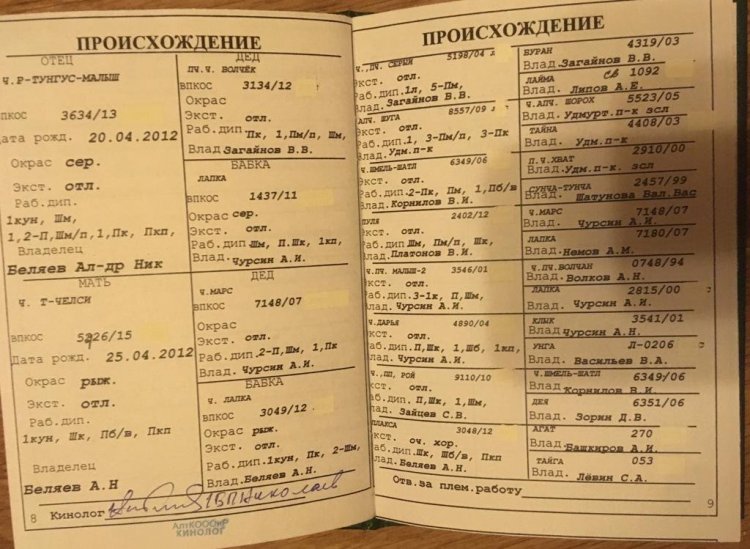 ПРОИСХОЖДЕНИЕ
ОТЕЦ
Ч.Р-ТУНГУС-МАЛЫШ
ВПКОС 3634/13
Дата рожд. 20.04.2012
Окрас сер.
Экст. отл.
Раб.дип.
1кун, Шм,
1,2-П,Шм/п,1,Пк, Пкп,
Владелец
Беляев Ал-др Ник
МАТЬ
Ч. Т-ЧЕЛСИ
ВПКОС 5226/15
Дата рожд. 25.04.2012
Окрас рыж.
Экст. отл.
Раб.дип.
1кун, Шк, Пб/в, Пкп
Владелец
Беляев А.Н
ДЕД
ПЧ.Ч. ВОЛЧЁК
ВПКОС 3134/12
Окрас
Экст. отл.
Раб.дип. Пк, 1,Пм/п, Шм,
Влад. Загайнов В.В.
БАБКА
ЛАПКА
ВПКОС 1437/11
Окрас сер.
Экст. отл.
Раб.дип. Шм, П.Шк, 1кп,
Влад. Чурсин А.И.
ДЕД
Ч.МАРС
ВПКОС 7148/07
Окрас
Экст. отл.
Раб.дип. 2-П,Шм, 1,Пк
Влад. Чурсин А.И.
БАБКА
Ч. ЛАПКА
ВПКОС 3049/12
Окрас рыж.
Экст. отл.
Раб.дип. 1кун, Пк, 2-Шм,
Влад. Беляев А.Н.
8 Кинолог
КИНОЛОГ
ПРОИСХОЖДЕНИЕ
Ч.,ПЧ. СЕРЫЙ 5198/04
Экст. отл.
Раб.дип.1л, 5-Пм,
Влад. Загайнов В.В.
АПЧ. ШУГА 8557/09
Экст. отл.
Раб.дип. 1, 3-Пм/п, 3-Пк
Влад. Удм.п-к
Ч.ШМЕЛЬ-ШАТЛ 6349/06
Экст. отл.
Раб.дип.2-Пк, Пм, 1,Пб/в
Влад. Корнилов В.И.
ПУЛЯ 2402/12
Экст. отл.
Раб.дип Шм, Пм/п, Шк,
Влад. Платонов В.И.
Ч.ПЧ. МАЛЫШ-2 3546/01
Экст. отл.
Раб.дип.3-1к, П,Шм,
Влад. Чурсин А.И.
Ч.ДАРЬЯ 4890/04
Экст. отл.
Раб.дип. П,Шк, 1,Шб, 1кп,
Влад. Чурсин А.И.
Ч.,ПП, РОЙ 9110/10
Экст. отл.
Раб.дип. П,Шк, 1,Шм,
Влад. Зайцев С.В.
ПЛАКСА 3048/12
Экст. оч. хор.
Раб.дип. П,Шк, Шб/в, Пкп
Влад. Беляев А.Н.
БУРАН 4319/03
Влад. Загайнов В.В.
ЛАЙМА св 1092
Влад. Липов А.Е.
Ч.АПЧ. ШОРОХ 5523/05
Влад. Удмурт.п-к зсл
ТАЙНА 4408/03
Влад. Удм.п-к
П.Ч.ХВАТ 2910/00
Влад. Удм.п-к. зсл
СУНЧА-ТУНЧА 2457/99
Влад. Шатунова Вал.Вас
Ч.МАРС 7148/07
Влад. Чурсин А.И.
ЛАПКА 7180/07
Влад. Немов А.М.
Ч.ПЧ.ВОЛЧАН 0748/94
Влад. Волков А.Н.
ЛАПКА 2815/00
Влад. Чурсин А.И.
КЛЫК 3541/01
Влад. Чурсин А.Н.
УНГА Л-0206
Влад. Васильев В.А.
Ч.ШМЕЛЬ-ШАТЛ 6349/06
Влад. Корнилов В.И.
ДЕЯ 6351/06
Влад. Зорин Д.В.
АГАТ 270
Влад. Башкиров А.И.
ТАЙГА 053
Влад. Лёвин С.А.
Отв.за плем.работу
9